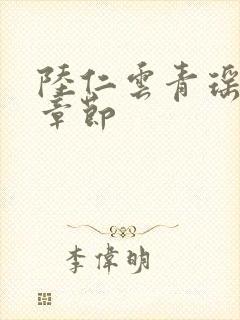 陸仁雲青瑶
章節
李偉明